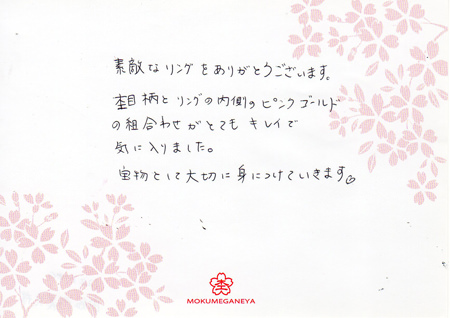 素敵なリングをありがとうございます。
杢目柄とリングの内側のピンクゴールド
の組合わせがとてもキレイで
気に入りました。
宝物として大切に身につけていきます♡
杢
MOKUMEGANEYA